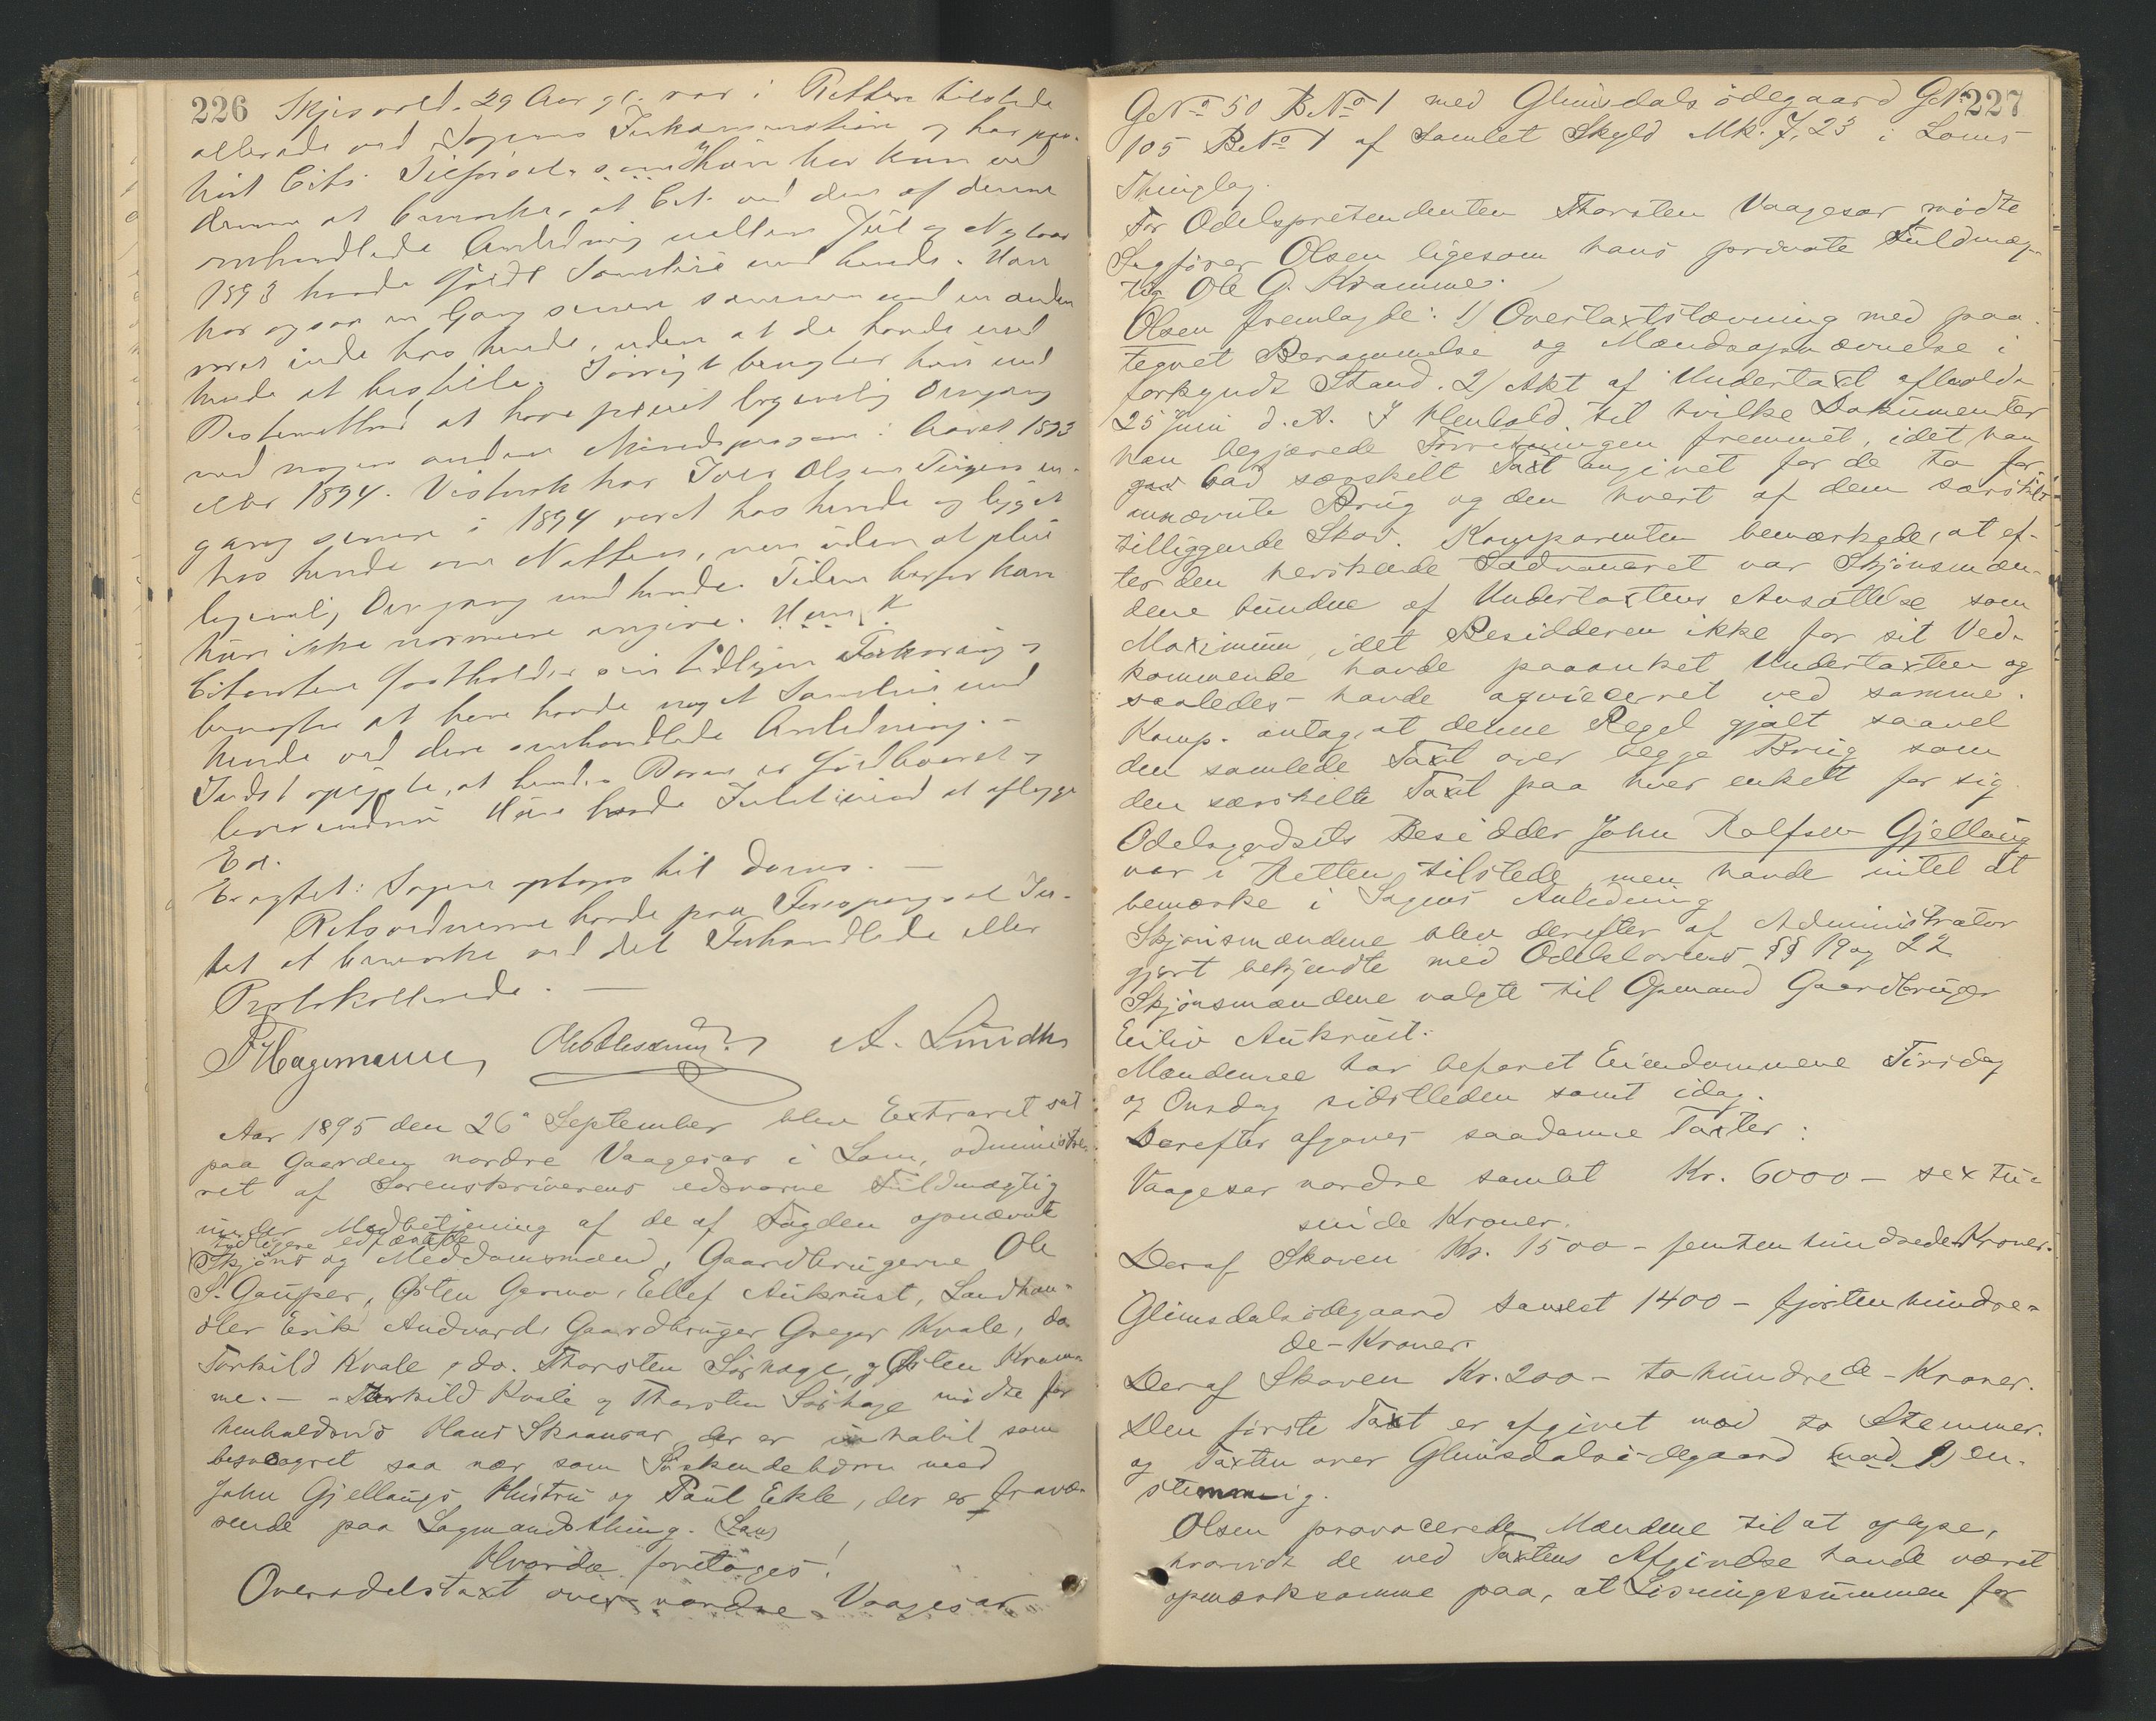 226
Skjisvold. 29 Aar gl. var i Retten tilstede
allerede ved Sagens Inkamination og har paa-
hørt Cits. Tilførsel. Hun har kun ved
denne at bemærke, at Cit. ved den af denne
omhandlede Anledning mellem Jul og Nytaar
1893 havde fuldt Samleie med hende. Han
har ogsaa en Gang senere sammen med en anden
været inde hos hende, uden at de havde med
hende at bestille. Forøvrigt benegter hun med
Bestemthed at have pleiet legemelig Omgang
med nogen anden Mandsperson i Aaret 1893
eller 1894. Vistnok har Iver Olsen Teigen en-
gang senere i 1894 været hos hende og ligget
hos hende om Natten, men uden at pleie
legemlig Omgang med hende. Tiden herfor kan
hun ikke nærmere angive.
Citanten fastholder sin tidligere Forklaring og
benegter at have havde noget Samleie med
hende ved den omhandlede Anledning. —
Indst. oplyste, at hendes Barn er født og
lever endnu. Hun havde Intet imod at aflægge
Ed.
Eragtet: Sagen optages til Doms. —
Retsvidnerne havde paa Forespørgsel In-
tet at bemærke ved det Forhandlede eller
Protokollerede. —
Hagemann, A. Lindh
Aar 1895 den 26' September blev Extraret sat
paa Gaarden nordre Vaagesar i Lom, administre-
ret af Sorenskriverens edsvorne Fuldmægtig
under Medbetjening af de af Fogden opnævnte
tidligere edfæstede
Skjøns og Meddomsmænd, Gaardbrugerne Ole
S. Gaupar, Østen Garmo, Ellef Aukrust, Landhan-
dler Erik Andvord, Gaardbruger Gregar Kvale, do
Torkild Kvale, do. Thorsten Sørhage, og Østen Kram-
me. — Torkild Kvale og Thorsten Sørhage mødte for
henholdsvis Hans Skaansar, der er inhabil som
besvogret saa nær som Søskendebørn med
John Gjellaugs Hustru og Paul Ekle, der er fravæ-
rende paa Lagmandsthing.
Hvorda foretoges!
Overodelstaxt over nordre Vaagesar
227
GNo 50 BNo 1 med Glimsdals ödegaard GNo
105 BNo 1 af samlet Skyld Mk. 7.23 i Loms
Thinglag.
For Odelspretendenten Thorsten Vaagesar mødte
Sagfører Olsen ligesom hans private Fuldmæg-
tig Ole G. Kramme.
Olsen fremlagde: 1) Overtaxtstævning med paa-
tegnet Berammelse og Mændsopnævnelse i
forkyndt Stand. 2) Akt af Undertaxt afholdt
25 Juni d.A. I Henhold til hvilke Dokumenter
han begjærede Forretningen fremmet, idet han
bad særskilt Taxt angivet for de to for
unævnte Brug og den hvert af dem særskilt
tilliggende Skov. Komparenten bemærkede, at ef-
ter den herskende Sædvaneret var Skjønsmæn-
dene bundne af Undertaxtens Ansættelse som
Maximum, idet Besidderen ikke for sit Ved-
kommende havde paaanket Undertaxten og
saaledes havde aqviesceret ved samme.
Komp. antog, at denne Regel gjalt saavel
den samlede Taxt over begge Brug som
den særskilte Taxt paa hver enkelt for sig.
Odelsgodsets Besidder John Rolfsen Gjellaug
var i Retten tilstede men havde intet at
bemærke i Sagens Anledning
Skjønsmændene blev derefter af Administrator
gjort bekjendte med Odelslovens §§ 19 og 22
Skjønsmændene valgte til Opmand Gaardbruger
Eiliv Aukrust.
Mændene har befaret Eiendommene Tirsdag
og Onsdag sidstleden samt idag.
Derefter afgaves saadanne Taxter:
Vaagesar nordre samlet Kr. 6000 — sex tu-
sinde Kroner.
Deraf Skoven Kr. 1500 — femten hundrede Kroner.
Glimsdalsödegaard samlet 1400 — fjorten hundre-
de — Kroner.
Deraf Skoven Kr. 200 — to hundrede — Kroner.
Den første Taxt er afgivet mod to Stemmer.
og Taxten over Glimsdalsödegaard en-
stemmig.
Olsen provocerede Mændene til at oplyse,
hvorvidt de ved Taxtens Afgivelse havde været
opmærksomme paa, at Løsningssummen for